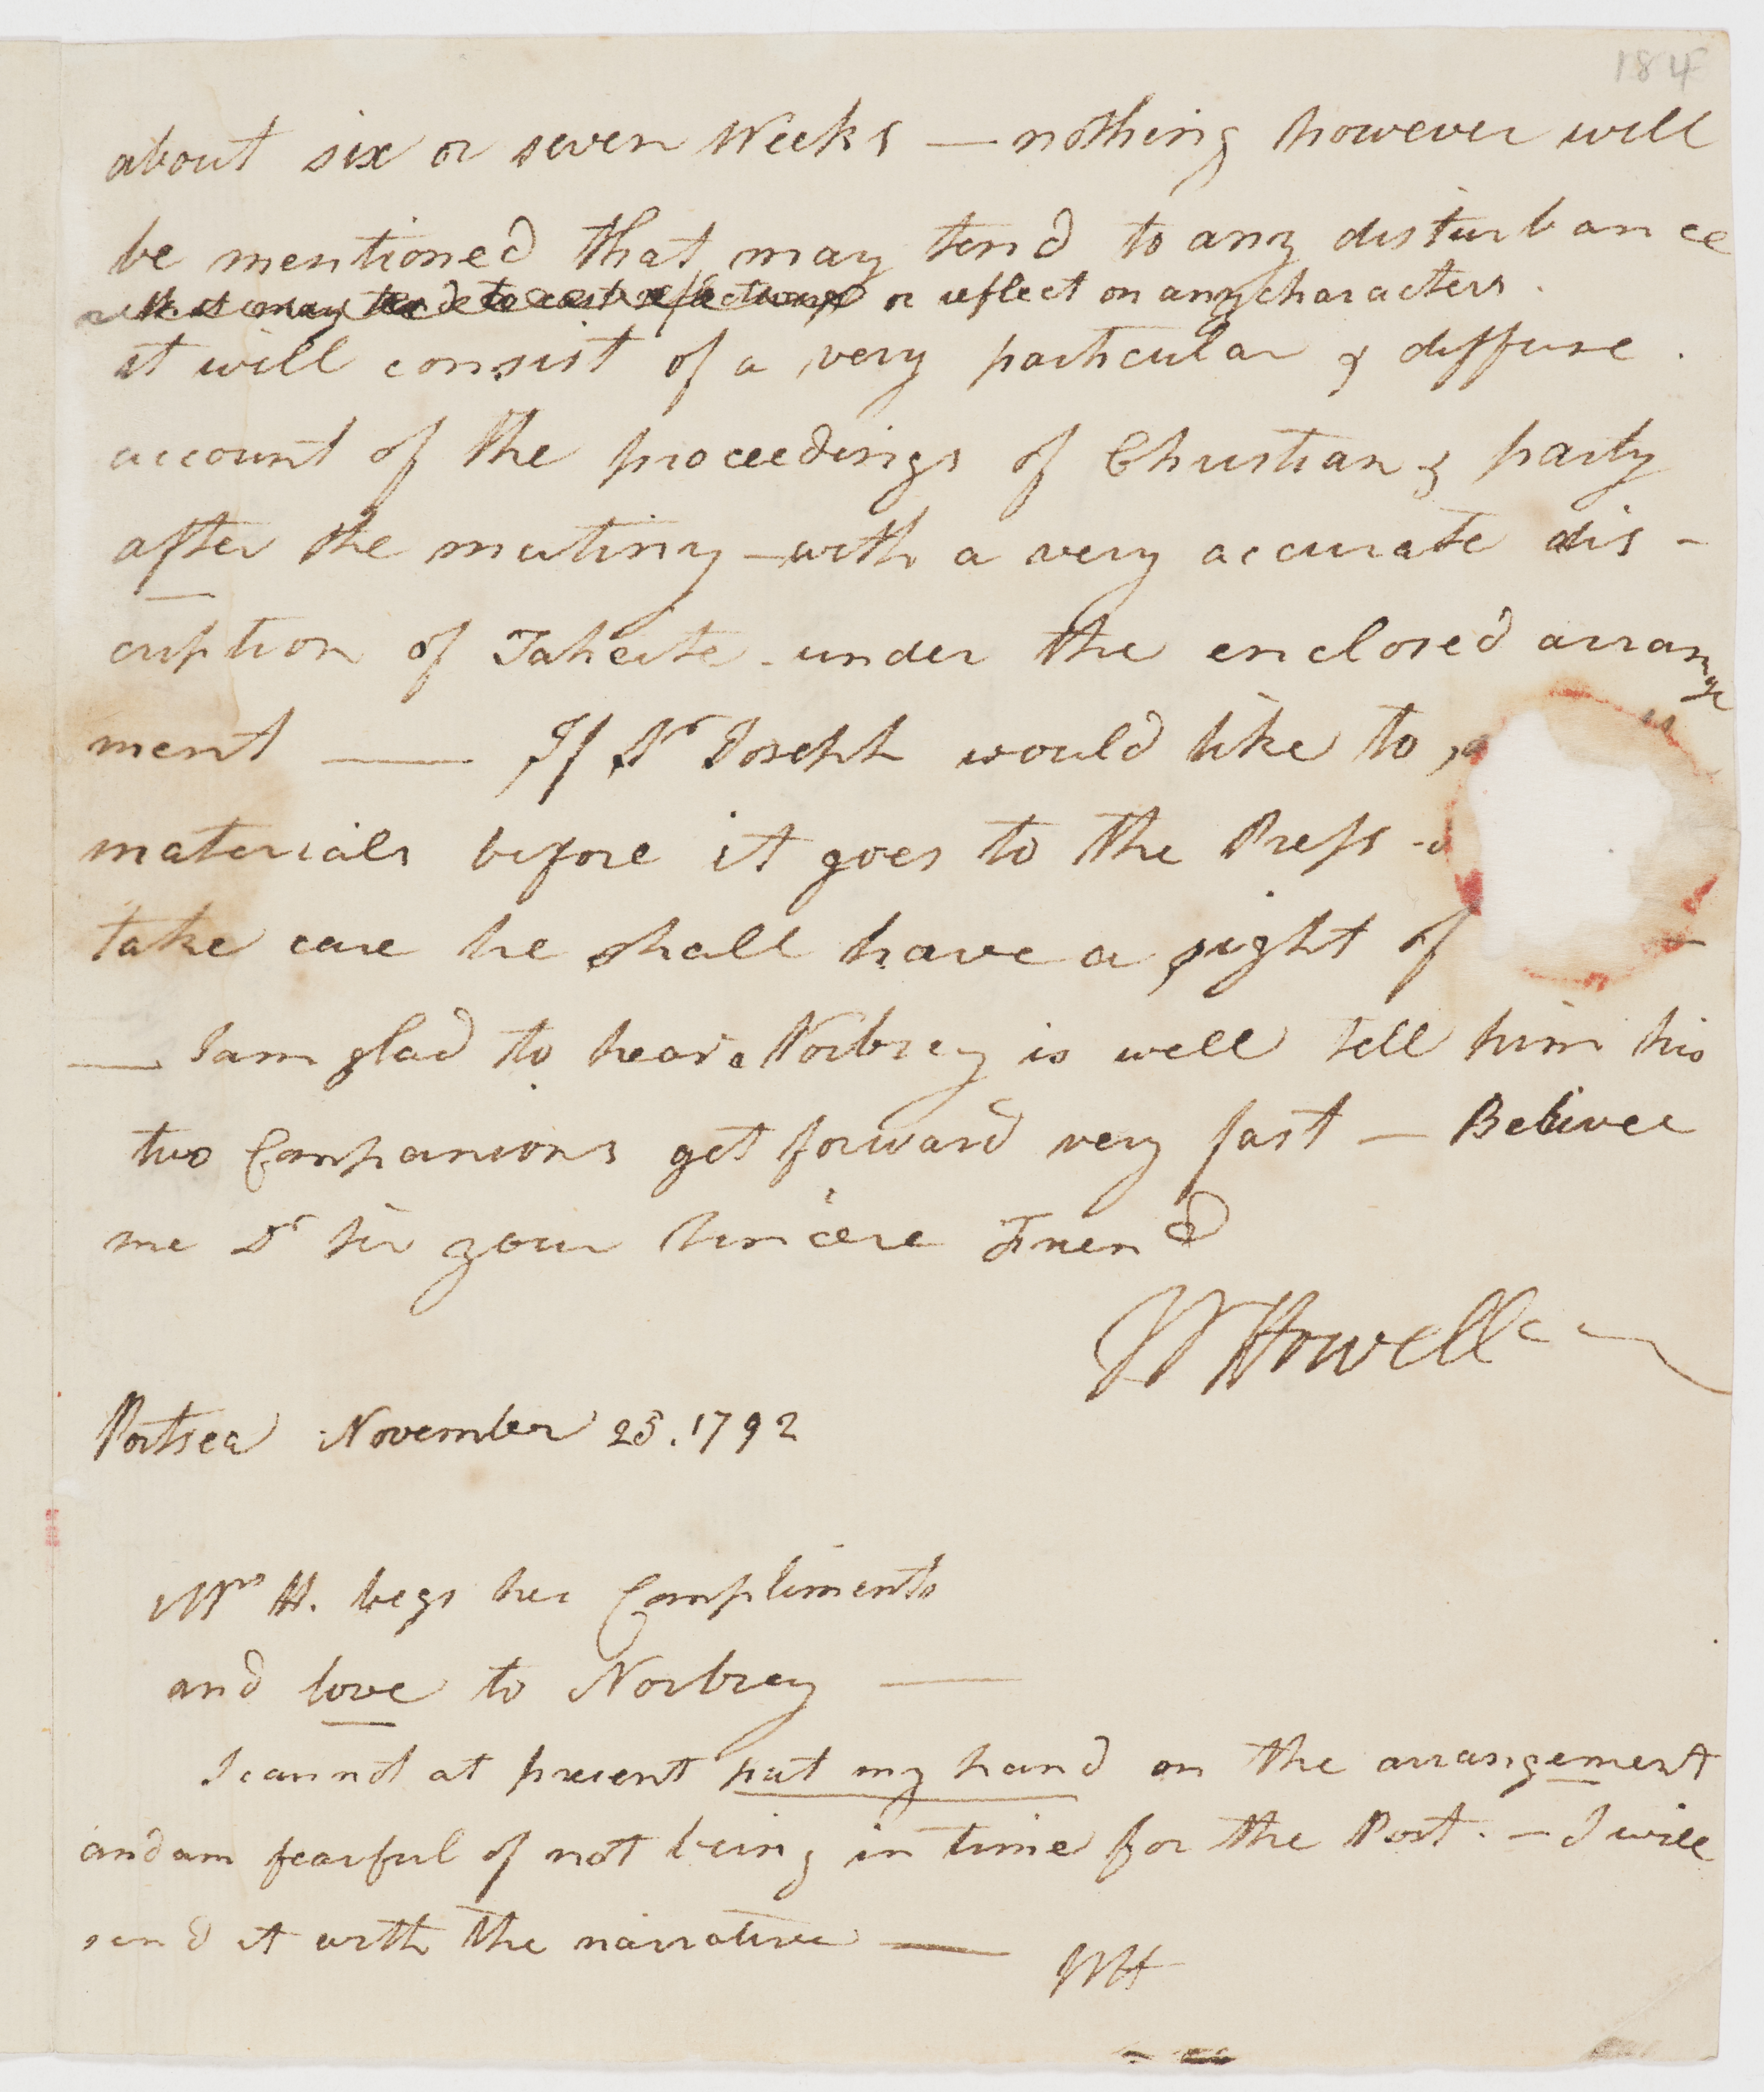 184
about six or seven Weeks — nothing however will
be mentioned that may tend to any disturbance
or reflect on any characters.
it will consist of a very particular & diffuse.
account of the proceedings of Christian & party
after the mutiny – with a very accurate dis -
cription of Taheite - under the enclosed arrange
ment — If Sr Joseph would like to
materials before it goes to the Press -
take care he shall have a sight of
— I am glad to hear Norbrey is well tell him his
two Companions get forward very fast — Belivee
me Dr Sir your Sincere Friend
W Howell
Portsea November 25. 1792
Mrs H. begs her Compliments
and love to Norbrey —
I cannot at present put my hand on the arrangement
and am fearful of not being in time for the Post. – I will
send it with the narrative —
WH